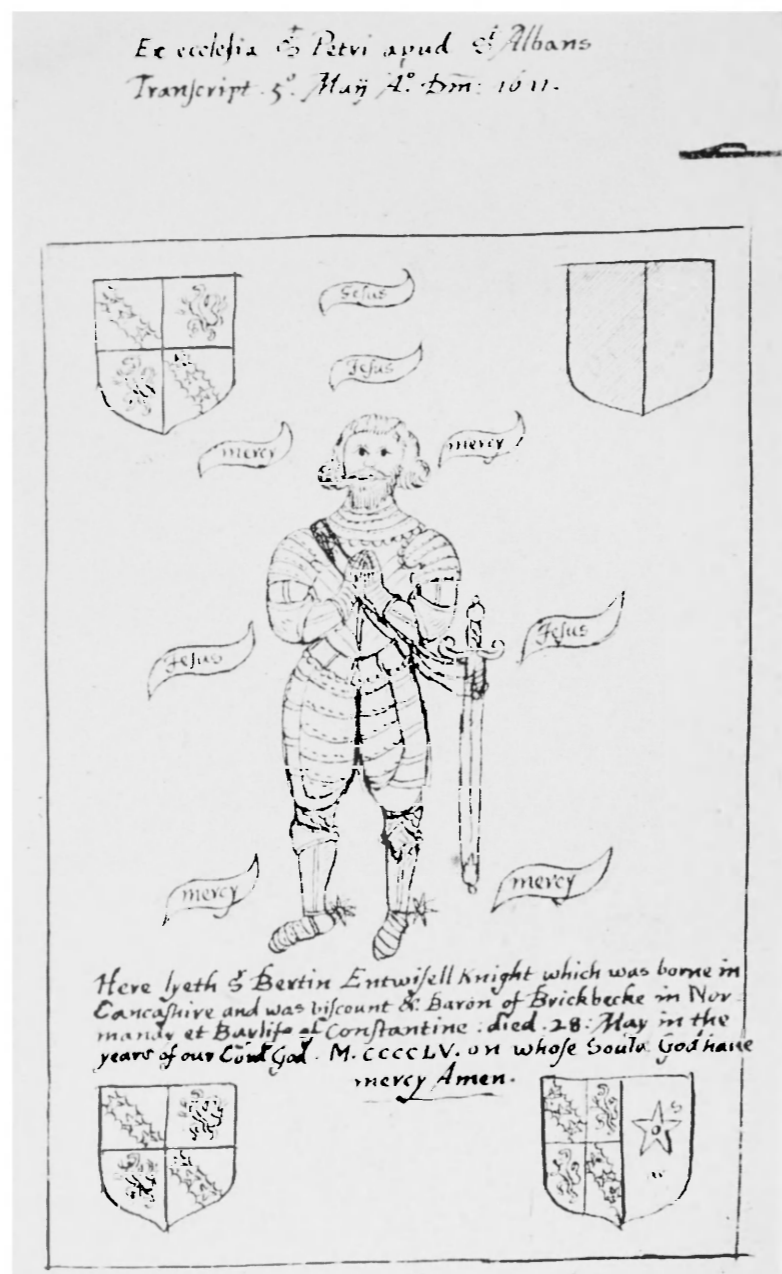 Ex ecclesia St Petri apud St Albans
Transcript . 5o. Maij Ao. Dm̄: 1611.
Jesus
Jesus
mercy
mercy
Jesus
Jesus
mercy
mercy
Here lyeth Sr Bertin Entwisell Knight which was borne in
Lancashire and was viscount & Baron of Brickbecke in Nor
mandy et Baylife of Constantine : died . 28 : May in the
years of our Lord God . M. CCCCLV. on whose Soule God haue
mercy Amen.